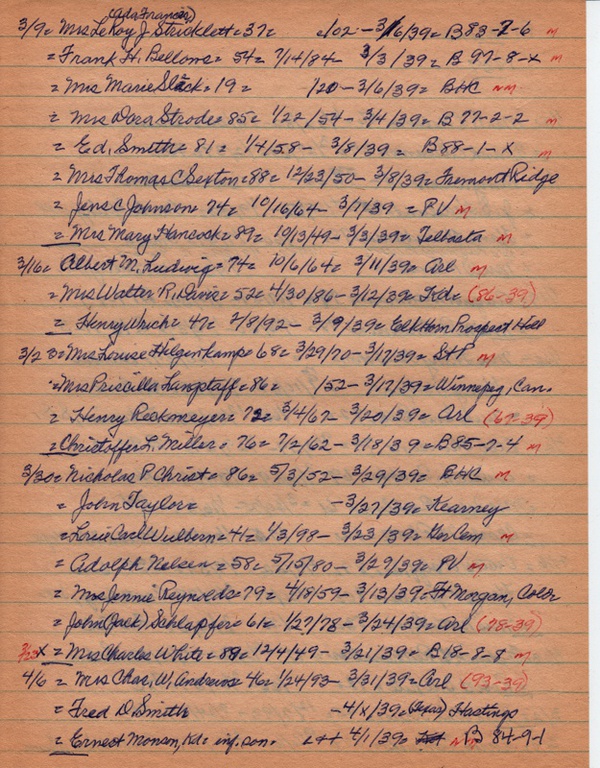 (Ada Frances)
3/9 = Mrs LeRoy J. Stricklett = 37 = /02 - 3/6/39 = B 83-7-6 m
= Frank H. Bellows = 54 = 7/14/84 - 3/3/39 = B 97-8-X m
= Mrs Marie Slack = 19 = /20 - 3/6/39 = BHC nm
= Mrs Dora Strode = 85 = 1/22/54 - 3/4/39 = B 77-2-2 m
= Ed. Smith = 81 = 1/4/58 - 3/8/39 = B 88-1-X m
= Mrs Thomas C Sexton = 88 = 12/23/50 - 3/8/39 = Fremont Ridge
= Jens C Johnson = 74 = 10/16/64 - 3/1/39 = PV m
= Mrs Mary Hancock = 89 = 10/13/49 - 3/3/39 = Telbasta m
3/16 = Albert M. Ludwig = 74 = 10/6/64 = 3/11/39 = Arl m
= Mrs Walter R. Davis = 52 = 4/30/86 - 3/12/39 = Kd = (86-39)
= Henry Wrich = 47 = 2/8/92 - 3/9/39 = Elk Horn Prospect Hill
3/23 = Mrs Louise Hilgenkamp = 68 = 3/29/70 - 3/17/39 = StP m
= Mrs Priscilla Langstaff = 86 = /52 - 3/17/39 = Winnepeg, Can.
= Henry Reckmeyer = 72 = 3/4/67 - 3/20/39 = Arl (67-39)
= Christoffer L. Miller = 76 = 7/2/62 - 3/18/39 = B 85-7-4 m
3/30 = Nicholas P Christ = 86 = 5/3/52 - 3/29/39 = BHC m
= John Taylor = - 3/27/39 = Kearney
= Louie Carl Wulbern = 41 = 1/3/98 - 3/23/39 = Ger Cem m
= Adolph Nelsen = 58 = 5/15/80 - 3/29/39 = PV m
= Mrs Jennie Reynolds = 79 = 4/18/59 - 3/13/39 = Ft Morgan, Colo
= John (Jack) Schlapfer = 61 = 1/27/78 - 3/24/39 = Arl (78-39)
3/23 X = Mrs Charles White = 89 = 12/4/49 - 3/21/39 = B 18-8-8 m
4/6 = Mrs Chas. W. Andrews = 46 = 1/24/93 - 3/31/39 = Arl (93-39)
= Fred D. Smith - 4/X/39 = (Texas) Hastings
= Ernest Monson, Kd = inf. son. = 4/1/39 = B 84-9-1